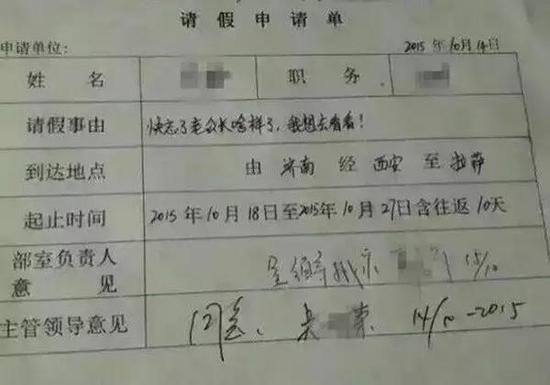 请假申请单
申请单位: 2015年10月14日
姓名 职务
请假事由 快忘了老公长啥样了,我想去看看!
到达地点 由济南经西安至拉萨
起止时间 2015年10月18日至2015年10月27日含往返10天
部室负责人意见 呈领导批示 15/10
主管领导意见 同意. 14/10-2015